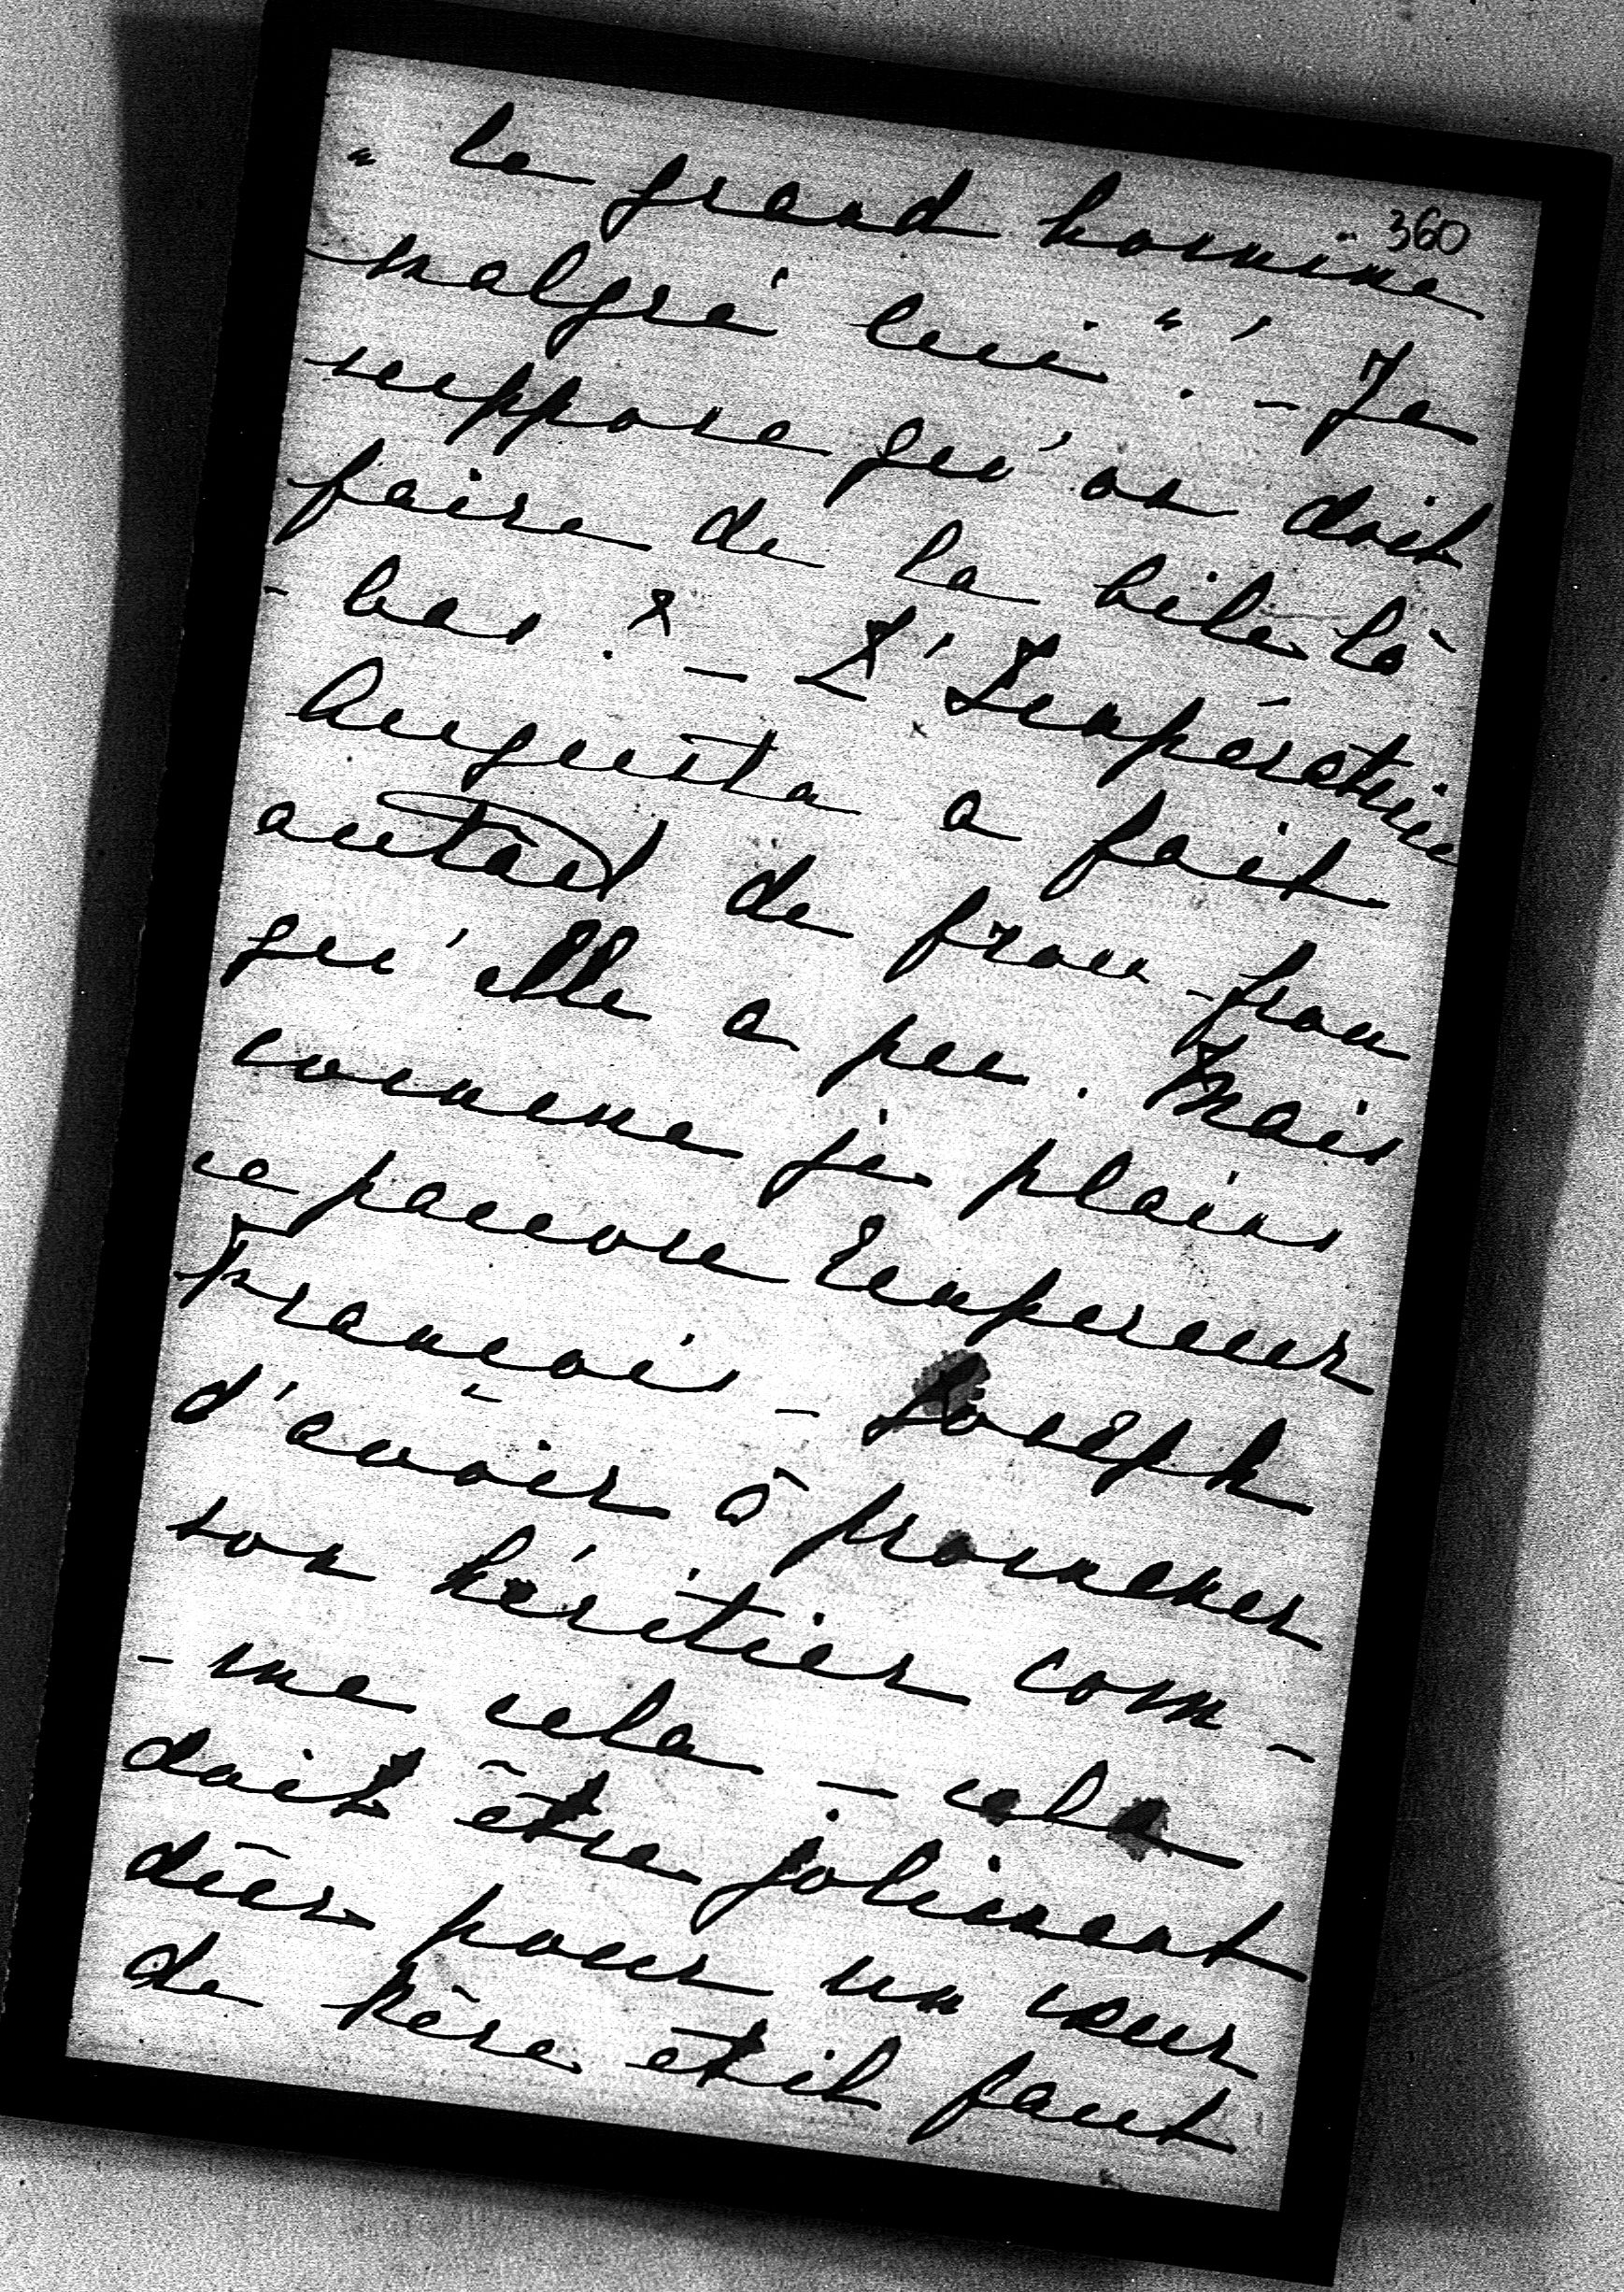 360
" le grand homme "
malgré lui. " ! – Je
suppose qu'on doit
faire de la bile là
- bas ? – L'Impératrice
Augusta a fait
autant de frou-frou
qu'elle a peu. Mais
comme je plains
ce pauvre Empereur
François - Joseph
d'avoir à promener
son héritier com-
- me cela – cela
doit être joliment
dûr pour un cœur
de père et il faut